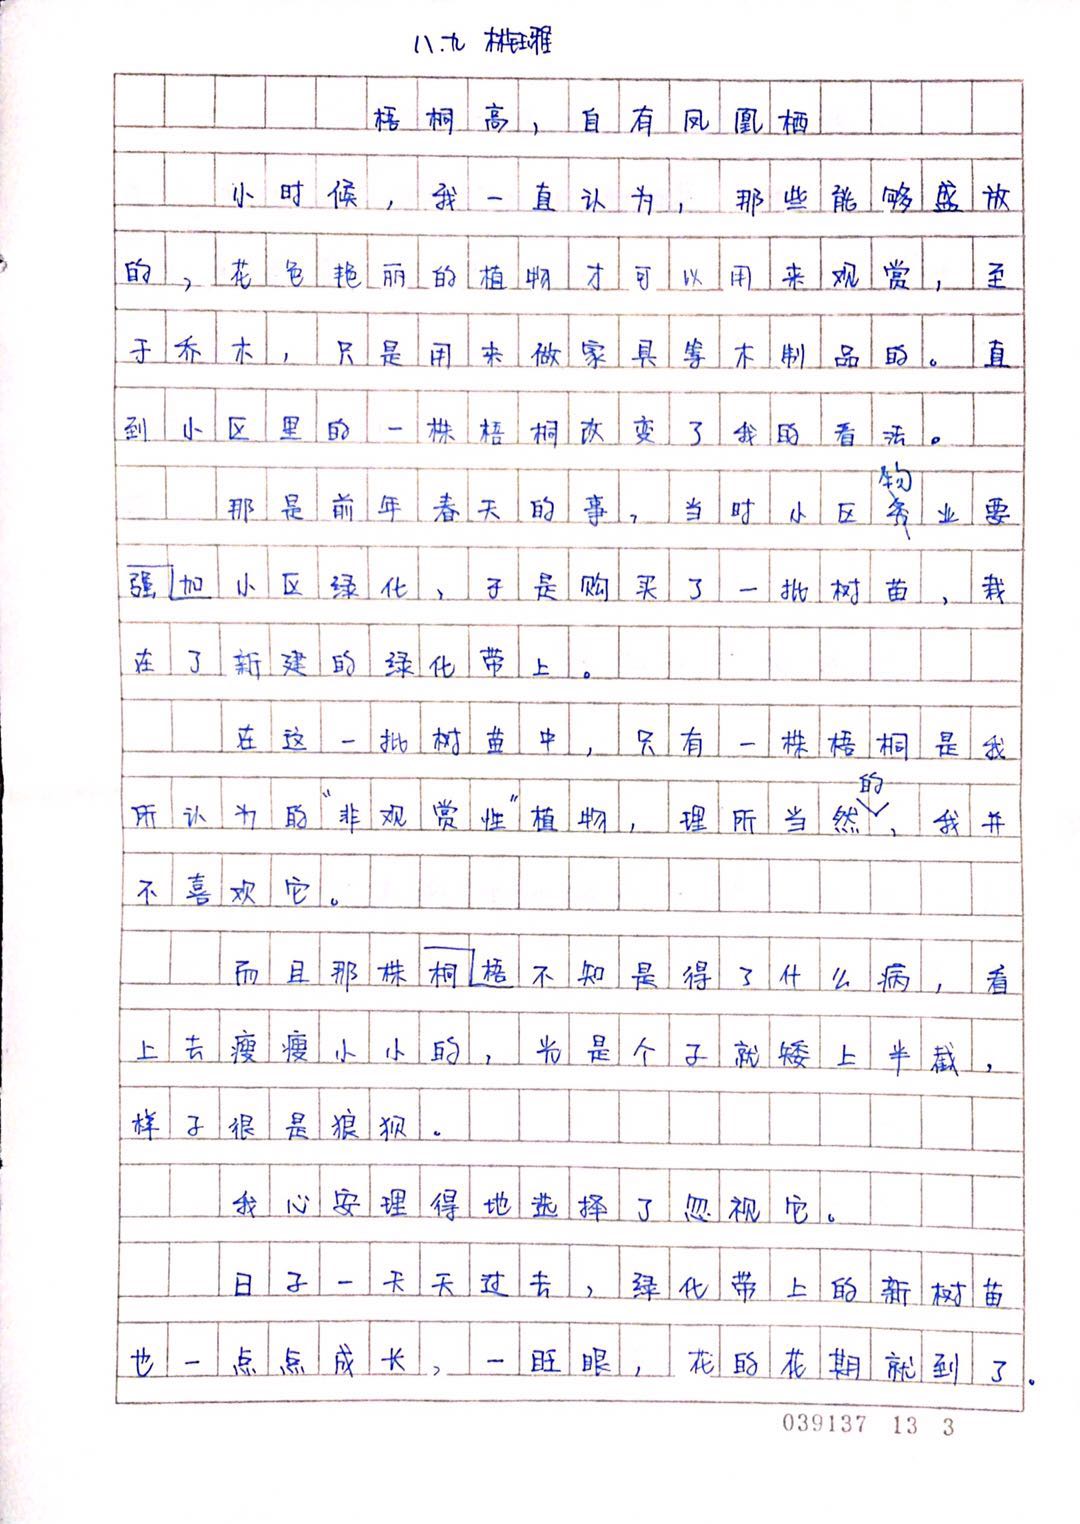 八.九
梧桐高，自有凤凰栖
小时候，我一直认为，那些能够盛放
的，花色艳丽的植物才可以用来观赏，至
于乔木，只是用来做家具等木制品的。直
到小区里的一株梧桐改变了我的看法。
那是前年春天的事，当时小区物业要
强加小区绿化，于是购买了一批树苗，栽
在了新建的绿化带上。
在这一批树苗中，只有一株梧桐是我
所认为的“非观赏性”植物，理所当然的，我并
不喜欢它。
而且那株桐梧不知是得了什么病，看
上去瘦瘦小小的，光是个子就矮上半截，
样子很是狼狈。
我心安理得地选择了忽视它。
日子一天天过去，绿化带上的新树苗
也一点点成长，一眨眼，花的花期就到了。
039137 13 3